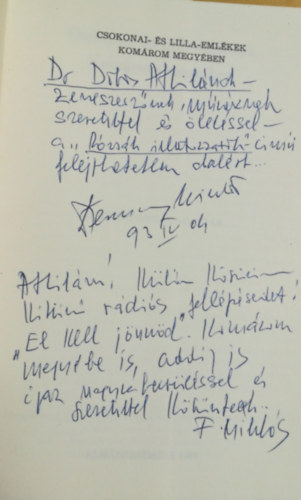 CSOKONAI- ÉS LILLA-EMLÉKEK
KOMÁROM MEGYÉBEN
Dr Dobos Attilának –
zeneszerzőnek,
szeretettel és öleléssel –
a „Rózsák illatozzatok" című
felejthetetlen dalért...
Miklós
93 IV
Attilám! Külön köszönöm
kitűnő rádiós fellépésedet!
"El kell jönnöd" Komárom
megyébe is, addig is
igaz nagyrabecsüléssel és
szeretettel köszöntelek..
F. Miklós